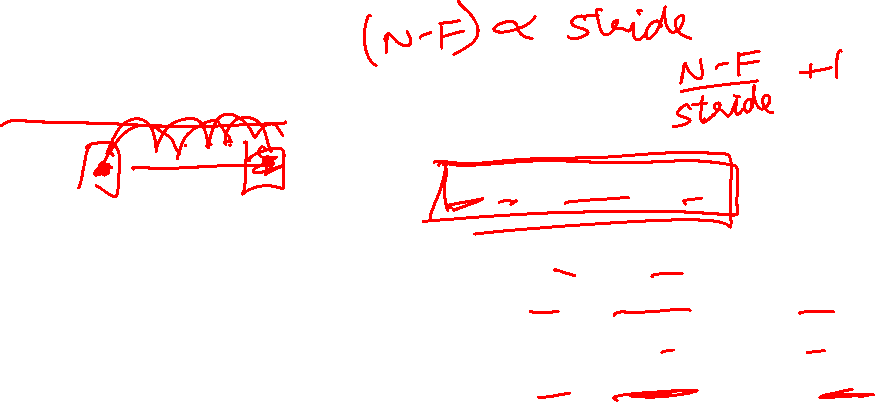 (N-F) ∝ stride
N-F / stride +1